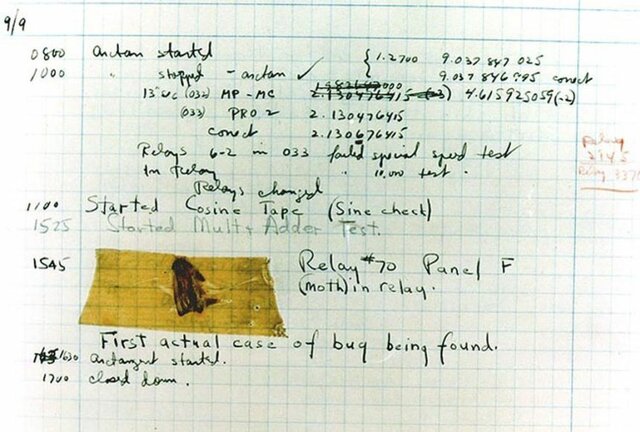 9/9
0800 arctan started { 1.2700 9.037 847 025
1000 " stopped - arctan ✓ 9.037 846 795 correct
13"uc (032) MP - MC 2.130476415 4.615925059(-2)
(033) PRO 2 2.130476415
correct 2.130676415
Relays 6-2 in 033 failed special speed test
In Relay " 10,000 test.
Relays changed
Relay
2145
Relay 3370
1100 Started Cosine Tape (Sine check)
1525 Started Mult + Adder Test.
1545 Relay #70 Panel F
(Moth) in relay.
First actual case of bug being found.
1630 arctangent started.
1700 closed down.